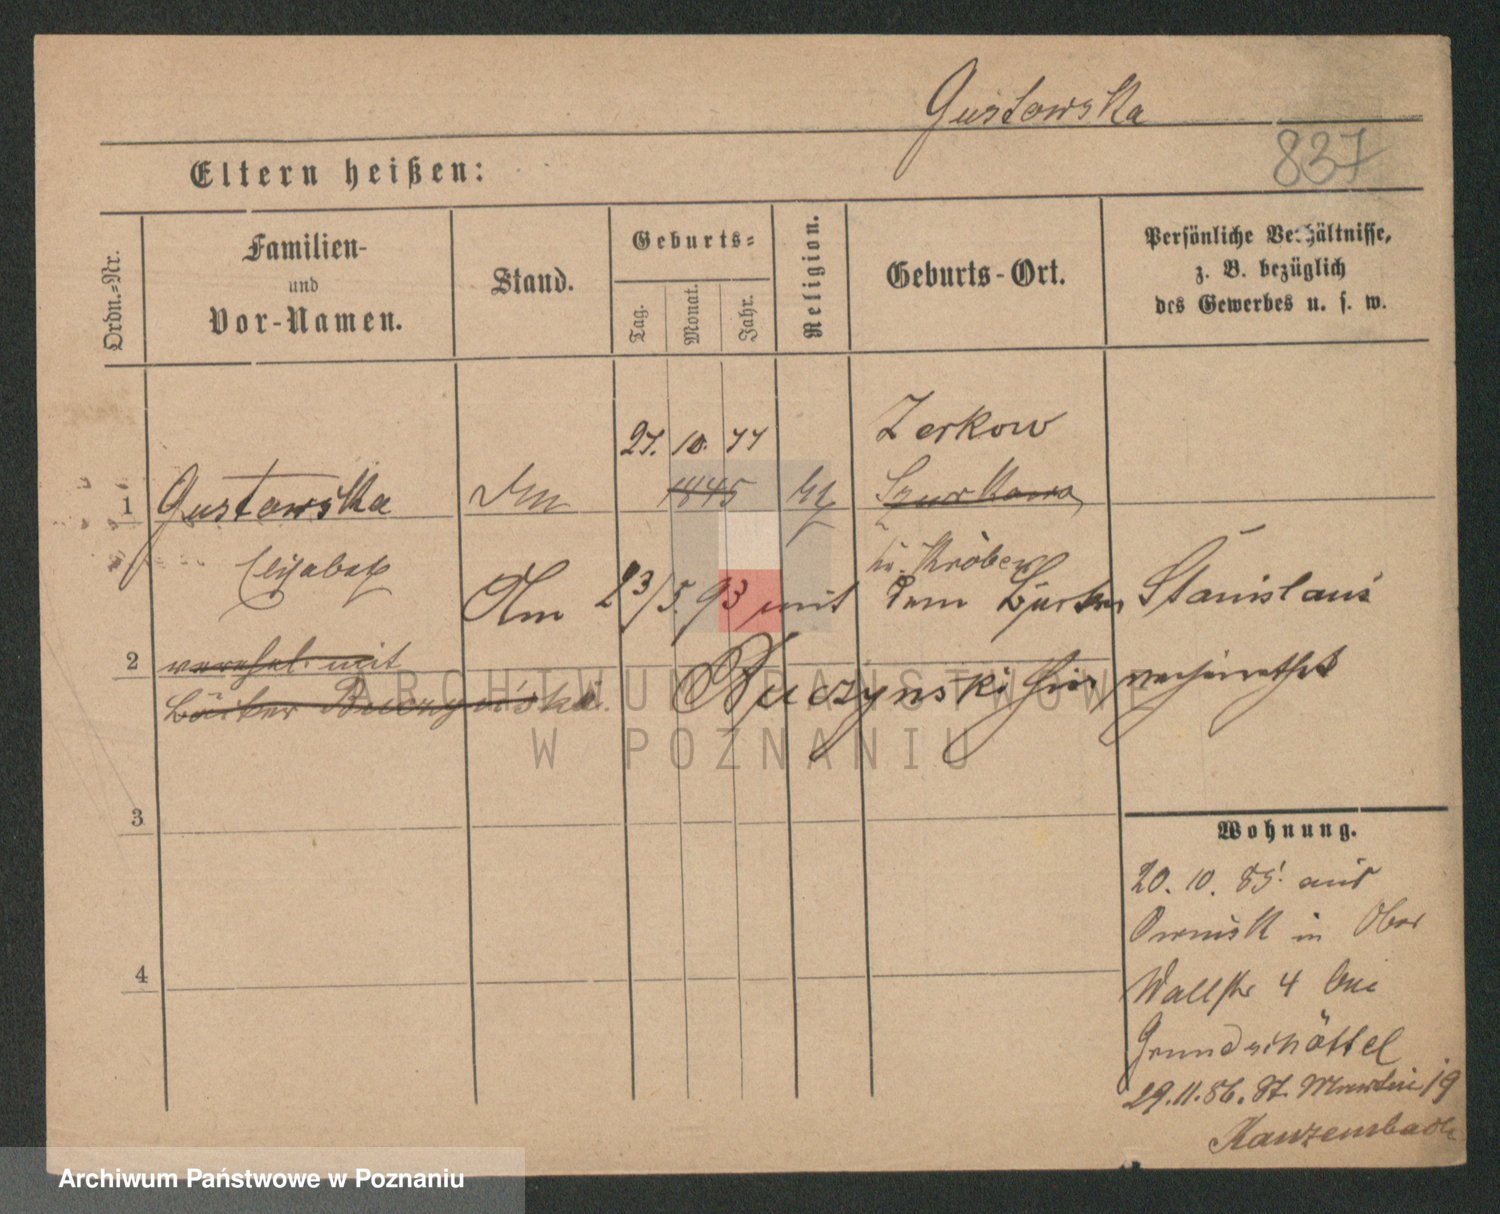 Gustowska
837
Eltern heißen:
Ordn.-Nr.
Familien-
und
Vor-Namen.
Stand.
Geburts-
Tag.
Monat.
Jahr.
Religion.
Geburts-Ort.
Persönliche Verhältnisse,
z. B. bezüglich
des Gewerbes u. s. w.
27. 10. 44
Zerkow
1
Gustowska
1845
Elisabeth
Am 23/5. 93 mit dem Bäcker Stanislaus
2
verehel. mit
Buczynski hier verheirathet
Bäcker Buczynski.
3
Wohnung.
20. 10. 85. aus
in Ober
4
Wallstr 4 bei
Grundschöttel
29. 11. 86. St. Martin 19
Kanzenbach
ARCHIWUM PAŃSTWOWE
W POZNANIU
Archiwum Państwowe w Poznaniu